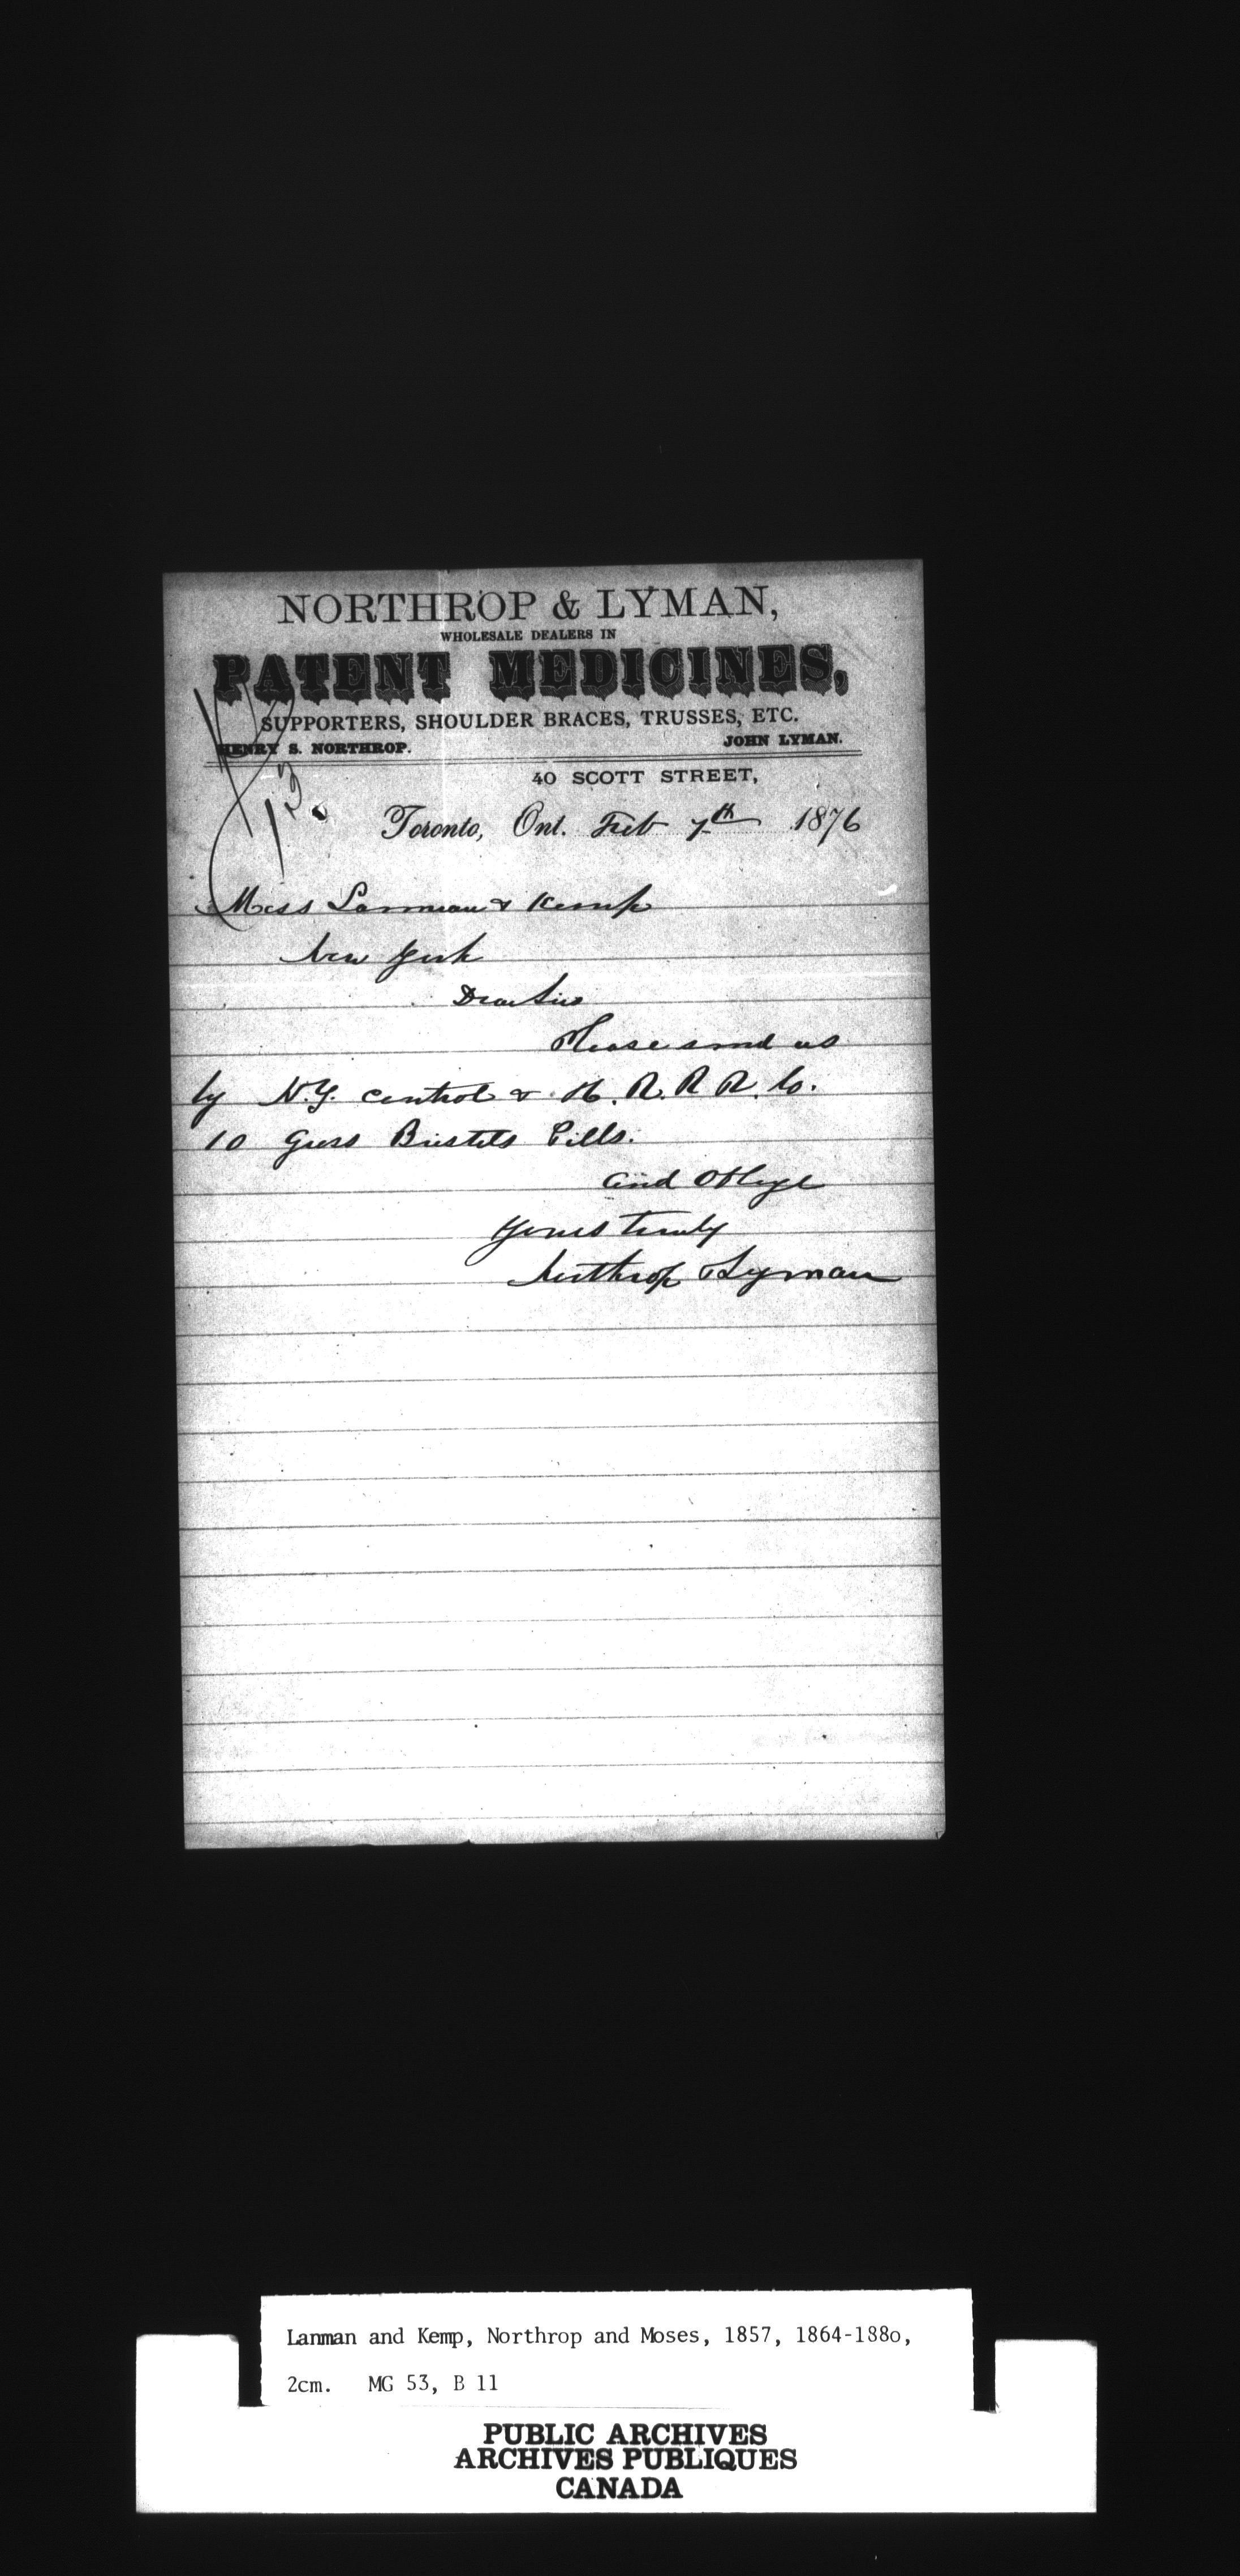 NORTHROP & LYMAN,
WHOLESALE DEALERS IN
PATENT MEDICINES,
SUPPORTERS, SHOULDER BRACES, TRUSSES, ETC.
HENRY S. NORTHROP. JOHN LYMAN.
40 SCOTT STREET,
Toronto, Ont. Feb 7th 1876
Mess Lanman & Kemp
New York
Dear Sirs
Please send us
by N.Y. Central & H. R. R R. Co.
10 Gross Bristols Pills.
and Oblige
Yours truly
Northrop & Lyman
Lanman and Kemp, Northrop and Moses, 1857, 1864-1880,
2cm. MG 53, B 11
PUBLIC ARCHIVES
ARCHIVES PUBLIQUES
CANADA